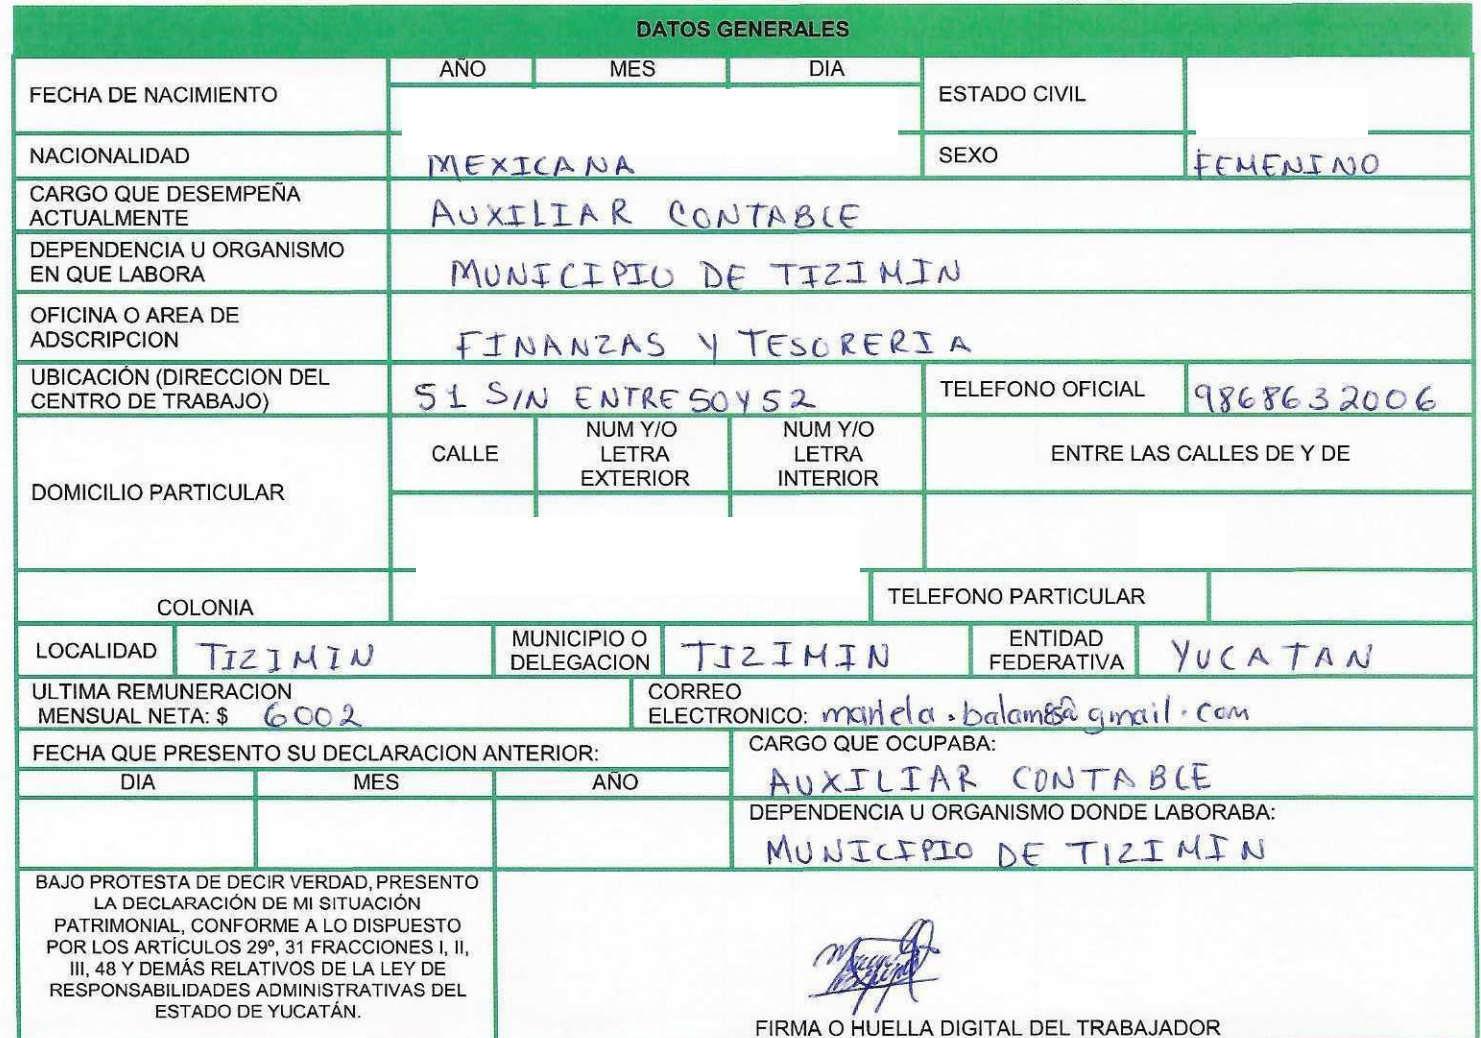 DATOS GENERALES
FECHA DE NACIMIENTO AÑO MES DIA ESTADO CIVIL
NACIONALIDAD MEXICANA SEXO FEMENINO
CARGO QUE DESEMPEÑA
ACTUALMENTE AUXILIAR CONTABLE
DEPENDENCIA U ORGANISMO
EN QUE LABORA MUNICIPIO DE TIZIMIN
OFICINA O AREA DE
ADSCRIPCION FINANZAS Y TESORERIA
UBICACIÓN (DIRECCION DEL
CENTRO DE TRABAJO) 51 S/N ENTRE 50 Y 52 TELEFONO OFICIAL 9868632006
DOMICILIO PARTICULAR
CALLE
NUM Y/O
LETRA
EXTERIOR
NUM Y/O
LETRA
INTERIOR
ENTRE LAS CALLES DE Y DE
COLONIA TELEFONO PARTICULAR
LOCALIDAD TIZIMIN
MUNICIPIO O
DELEGACION TIZIMIN
ENTIDAD
FEDERATIVA YUCATAN
ULTIMA REMUNERACION
MENSUAL NETA: $ 6002
CORREO
ELECTRONICO:
FECHA QUE PRESENTO SU DECLARACION ANTERIOR:
DIA MES AÑO
CARGO QUE OCUPABA:
AUXILIAR CONTABLE
DEPENDENCIA U ORGANISMO DONDE LABORABA:
MUNICIPIO DE TIZIMIN
BAJO PROTESTA DE DECIR VERDAD, PRESENTO
LA DECLARACIÓN DE MI SITUACIÓN
PATRIMONIAL, CONFORME A LO DISPUESTO
POR LOS ARTÍCULOS 29º, 31 FRACCIONES I, II,
III, 48 Y DEMÁS RELATIVOS DE LA LEY DE
RESPONSABILIDADES ADMINISTRATIVAS DEL
ESTADO DE YUCATÁN.
FIRMA O HUELLA DIGITAL DEL TRABAJADOR